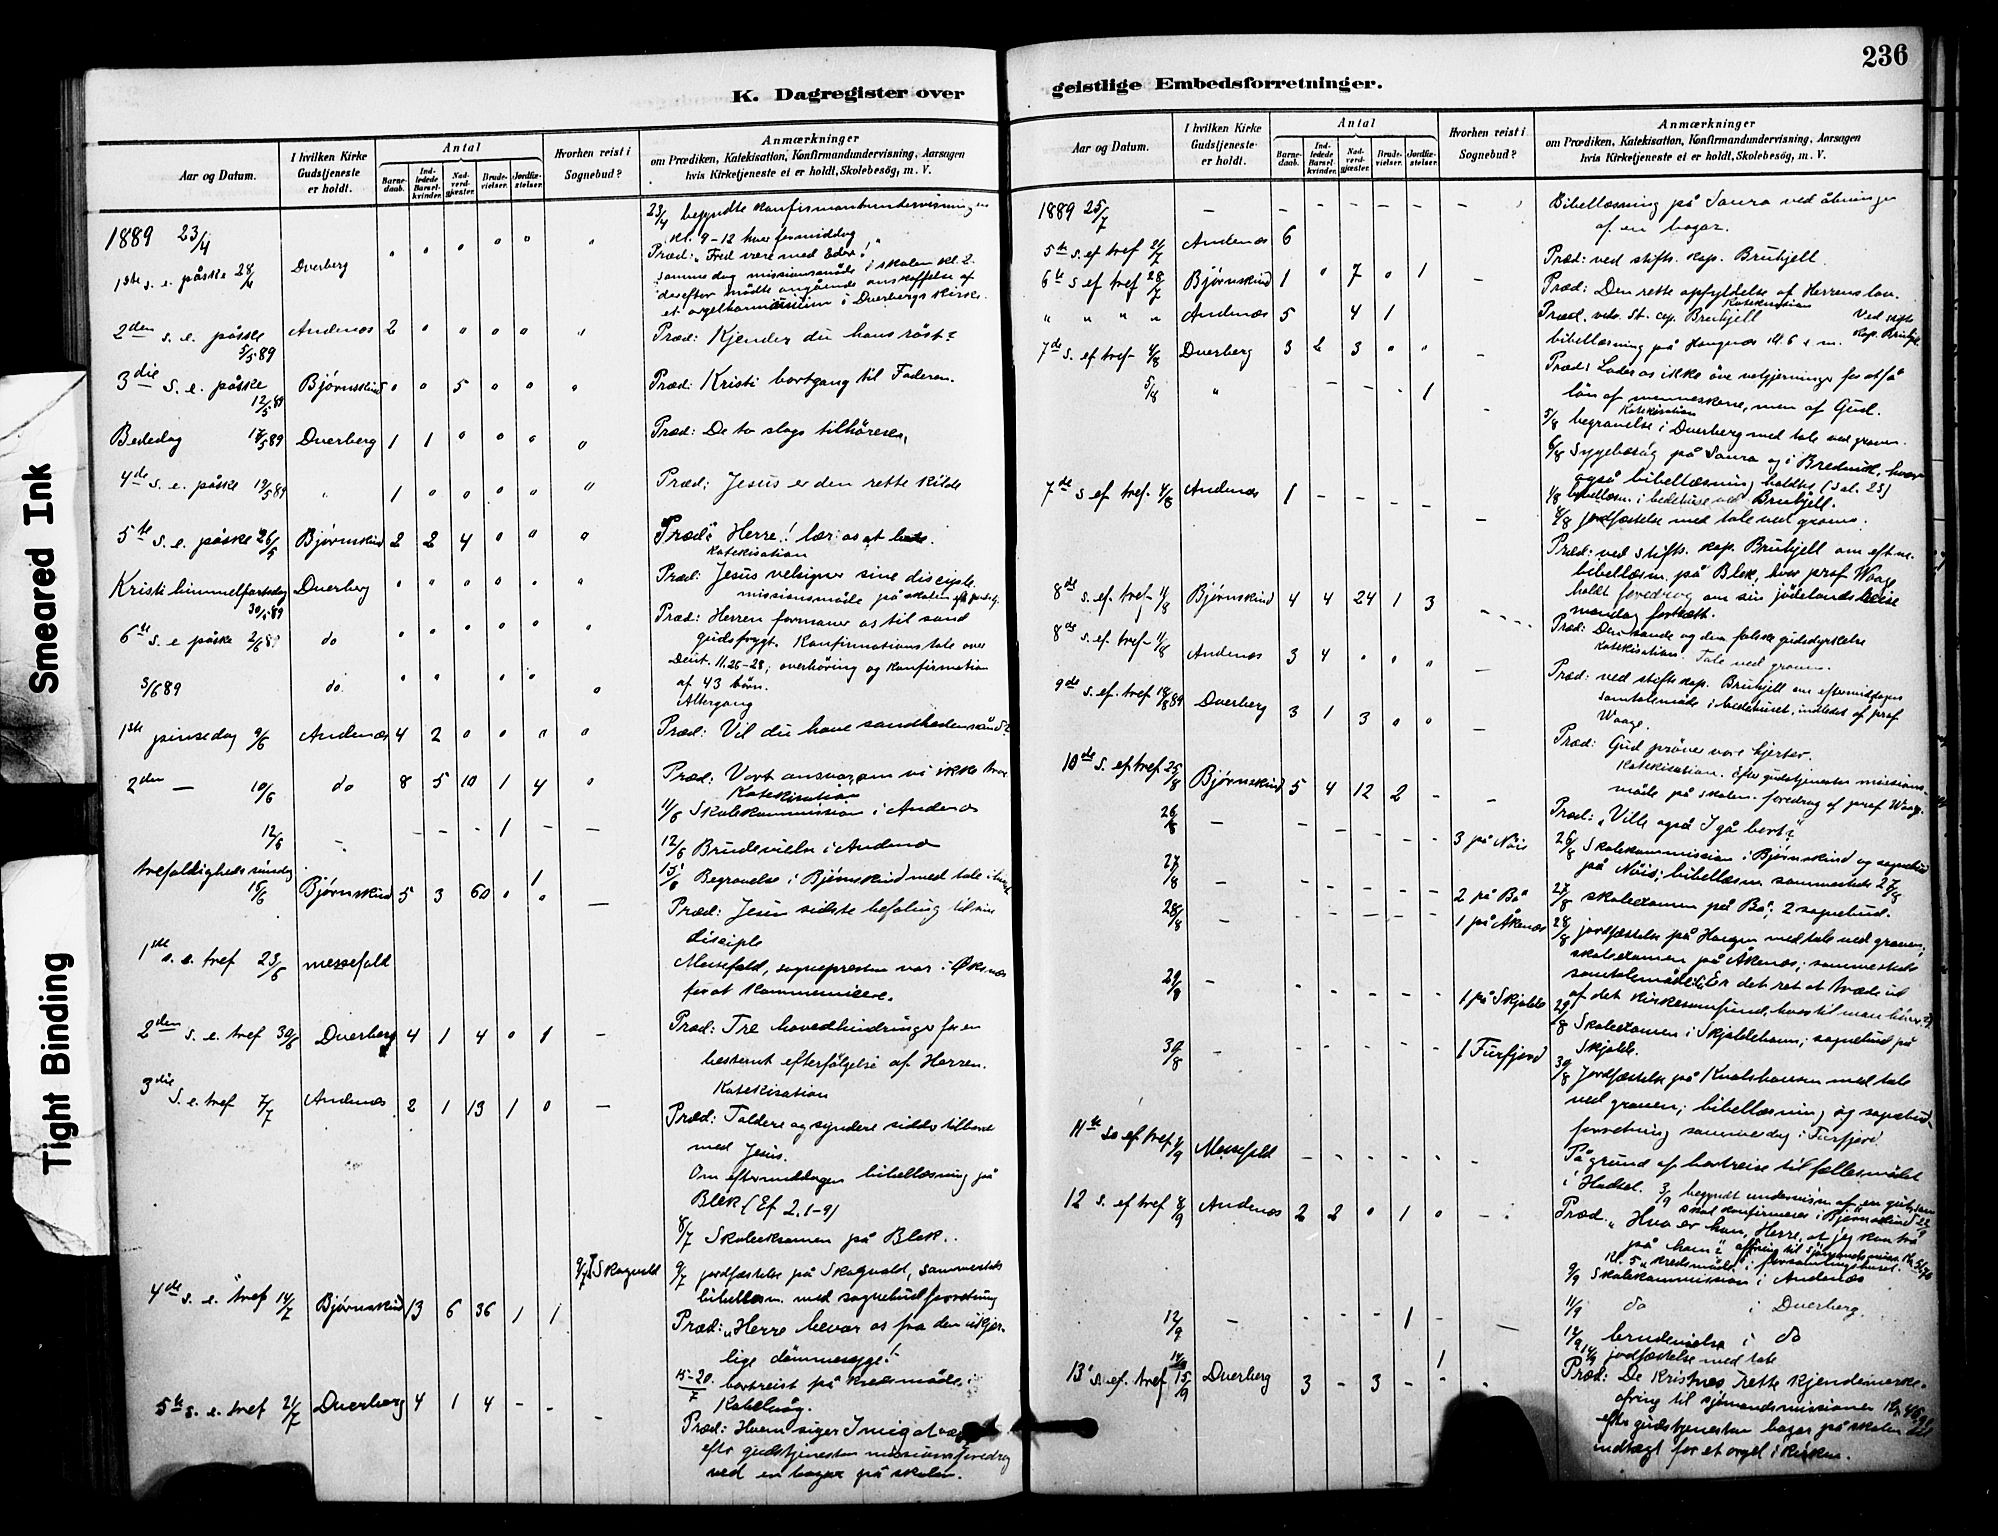 236
Smeared Ink
Tight Binding
K. Dagregister over
Aar og Datum.
I hvilken Kirke Gudstjeneste er holdt.
Antal
Barnedaab.
Indledede Barselkvinder.
Nadverdgjæster.
Brudevielser.
Jordfæstelser.
Hvorhen reist i Sognebud?
Anmærkninger
om Prædiken, Katekisation, Konfirmandundervisning, Aarsagen
hvis Kirketjeneste et er holdt, Skolebesøg, m. V.
1889 23/4
23/4 begyndte konfirmantundervisningen
kl. 9-12 hver formiddag
1ste s. e. påske 28/4 Dverberg
Præd: "Fred være med Eder!"
samme dag missionsmøde i skolen kl. 2.
derefter mødte angående anskaffelse af
et orgelharmonium i Dverbergs kirke.
2den s. e. påske 5/5 89 Andenæs 2 " " " " " Præd: Kjender du hans røst?
3die s. e. påske 12/5 89 Bjørnskind " " 5 " " " Præd: Kristi bortgang til Faderen.
Bededag 17/5 89 Dverberg 1 1 " " " " Præd: De to slags tilhørere.
4de s. e. påske 19/5 89 " 1 " " " " " Præd: Jesus er den rette kilde
5te s. e. påske 26/5 Bjørnskind 2 2 4 " " " Præd: Herre! lær os at bede.
Katekisation
Kristi himmelfartsdag 30/5 89 Dverberg " " " " " " Præd: Jesus velsigner sine disciple.
missionsmøde på skolen
6te s. e påske 2/6 89 do " " " " " " Præd: Herren formaner os til sand
gudsfrygt. Konfirmationstale over
Deut. 11.26-28; overhøring og konfirmation
af 43 børn.
3/6 89 do. " " " " "
Altergang
1ste pinsedag 9/6 Andenæs 4 2 " " " " Præd: Vil du have sandhedens ånd?
2den — 10/6 do 8 5 10 1 4 " Præd: Vort ansvar, om vi ikke tror
Katekisation
11/6 Skolekommission i Andenæs
12/6 - - - - 1 - - 12/6 Brudevielse i Andenæs
trefoldighedssøndag 15/6 Bjørnskind 5 3 60 " 1 —
15/6 Begravelse i Bjørnskind med tale
Præd: Jesu sidste befaling til sine
disciple
1ste s. e. tref 23/6 messefald
Messefald, sognepresten var i Øksnæs
for at kommunicere.
2den s. e. tref 30/6 Dverberg 4 1 4 0 1 - Præd: Tre hovedhindringer for en
bestemt efterfølgelse af Herren.
Katekisation
3die s. e. tref 7/7 Andenæs 2 1 13 1 0 —
Præd: Toldere og syndere sidde tilbords
med Jesus.
Om eftermiddagen bibellæsning på
Blek (Ef 2.1-9)
8/7 Skoleeksamen på Blek.
9/7 1 Skogvold 9/7 jordfæstelse på Skogvold, sammesteds
bibellæsn. med sognebudforretning
4de s. e. tref 14/7 Bjørnskind 13 6 36 1 1
Præd: "Herre bevar os fra den ukjær-
lige dømmesyge!
15-20/7 bortreist på kredsmøde i
Kabelvåg.
5te s. e. tref 21/7 Dverberg 4 1 4 - - —
Præd: Hvem siger I mig at være
efter gudstjenesten missionsforedrag
ved en bazar på skolen.
geistlige Embedsforretninger.
Aar og Datum.
I hvilken Kirke Gudstjeneste er holdt.
Antal
Barnedaab.
Indledede Barselkvinder.
Nadverdgjæster.
Brudevielser.
Jordfæstelser.
Hvorhen reist i Sognebud?
Anmærkninger
om Prædiken, Katekisation, Konfirmandundervisning, Aarsagen
hvis Kirketjeneste et er holdt, Skolebesøg, m. V.
1889 25/7 - - - - - - - Bibellæsning på Saura ved åbningen
af en bazar.
5te s. ef tref 21/7 Andenæs 6 Præd: ved stifts. kap. Bruhjell.
6te s ef tref 28/7 Bjørnskind 1 " 7 " 1 - Præd: Den rette opfyldelse af Herrens lov.
Katekisation
" " " " Andenæs 5 4 1 Præd. ved. st. cap. Bruhjell
Ved stifts kap. Bruhjell
bibellæsning på Haugnæs kl. 6 e m.
7de s. ef tref 4/8 Dverberg 3 2 3 " " -
Præd: Lader os ikke øve velgjerninger for at få
løn af menneskene, men af Gud.
Katekisation
5/8 " - - - 1 - 5/8 begravelse i Dverberg med tale ved graven.
6/8 Sygebesøg på Saura og i Bredvik, hvor
også bibellæsning holdtes (Sal. 25)
7de s ef tref. 4/8 Andenæs 1 - - - - -
bibellæsn. i bedehuset ved Bruhjell.
jordfæstelse med tale ved graven.
Præd: ved stifts. kap. Bruhjell om eftm.
bibellæsn. på Blek, hvor prof Waage
holdt foredrag om sin jødelandsreise
mandag fortsatt.
8de s. ef. tref 11/8 Bjørnskind 4 4 24 1 3
Præd: Den sande og den falske gudsdyrkelse
Katekisation. Tale ved graven.
8de s. ef tref 11/8 Andenæs 3 4 " " " -
Præd: ved stiftskap. Bruhjell om eftermiddagen
samtalemøde i bedehuset, indledet af prof
Waage.
9de s. ef. tref 18/8 89 Dverberg 3 1 3 " " -
Præd: Gud prøver vore hjerter.
Katekisation. Efter gudstjenesten missions-
møde på skolen. foredrag af prof Waage.
10de s. ef. tref 25/8 Bjørnskind 5 4 12 2 - -
Præd: "Ville også I gå bort?"
26/8 - - - - - - 3 på Nöis 26/8 Skolekommission i Bjørnskind og sognebud
på Nöis; bibellæsn sammesteds 27/8
27/8 - - - - - - 2 på Bö 27/8 skoleexamen på Bö; 2 sognebud.
28/8 - - - - - - 1 på Åknæs 28/8 jordfæstelse på Haugen med tale ved graven;
skoleexamen på Åknæs; sammesteds
samtalemøde: "Er det ret at træde ud
af det kirkesamfund, hvortil man hører?"
29/8 - - - - - - 1 på Skjolde 29/8 Skoleexamen i Skjoldehavn; sognebud på
Skjolde.
30/8 - - - - - - 1 Furfjord 30/8 Jordfæstelse på Kvalshausen med tale
ved graven; bibellæsning og sognebud-
forretning samme dag i Furfjord.
11te s. ef tref 1/9 Messefald - - - - - - På grund af bortreise til fællesmødet
i Hadsel. 3/9 begyndt undervisn. af en gut, som
skal konfirmeres i Bjørnskind 22/9
12 s. ef tref 8/9 Andenæs 2 2 " 1 " - Præd. "Hvo er han, Herre, at jeg kan tro
på ham?" offring til sjømandsmiss.
kl. 5 kredsmøde i forsamlingshuset.
9/9 Skolekommission i Andenæs
11/9 do i Dverberg.
12/9 - - - - 1 - - 12/9 brudevielse i do
14/9 1 14/9 jordfæstelse med tale
13 s. ef. tref 15/9 Dverberg 3 - 3 - - - Præd: De Kristnes rette kjendemærke.
ofring til sjømandsmissionen
efter gudstjenesten bazar på skolen til
indtægt for et orgel i kirken.